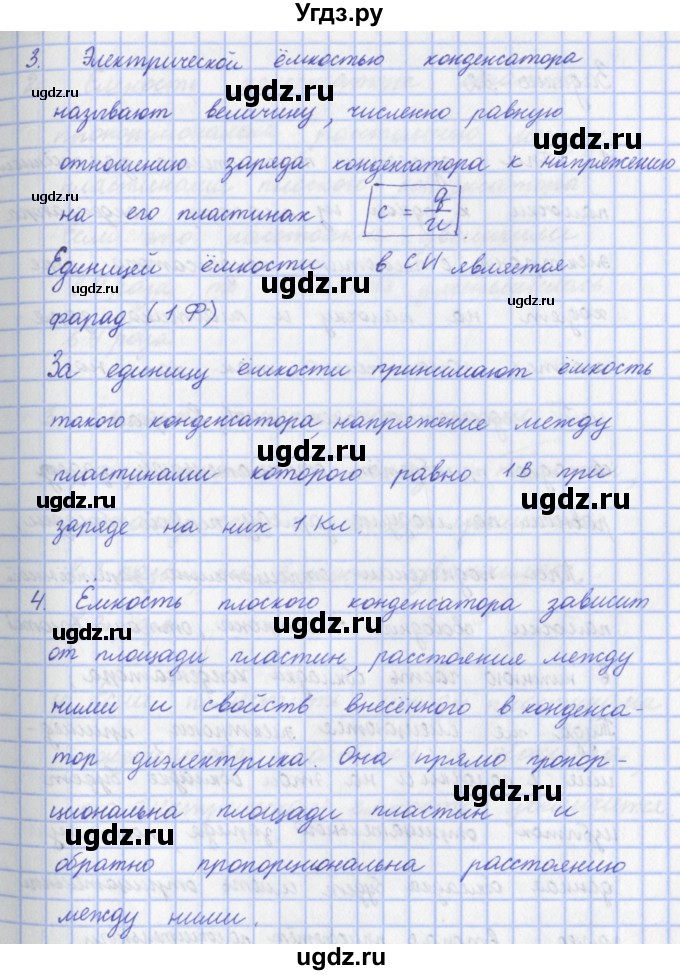 Угдз.ру
3. Электрической ёмкостью конденсатора
ugdz.ru ugdz.ru
называют величину, численно равную
ugdz.ru
отношению заряда конденсатора к напряжению
ugdz.ru
на его пластинах c = q/u.
Единицей ёмкости в СИ является
ugdz.ru
фарад (1 Ф)
ugdz.ru
За единицу ёмкости принимают ёмкость
такого конденсатора, напряжение между
ugdz.ru
пластинами которого равно 1В при
ugdz.ru ugdz.ru
заряде на них 1 Кл.
4. Ёмкость плоского конденсатора зависит
ugdz.ru ugdz.ru
от площади пластин, расстояния между
ними и свойств внесённого в конденса-
тор диэлектрика. Она прямо пропор-
ugdz.ru
циональна площади пластин и
ugdz.ru
обратно пропорциональна расстоянию
между ними.
ugdz.ru
ugdz.ru